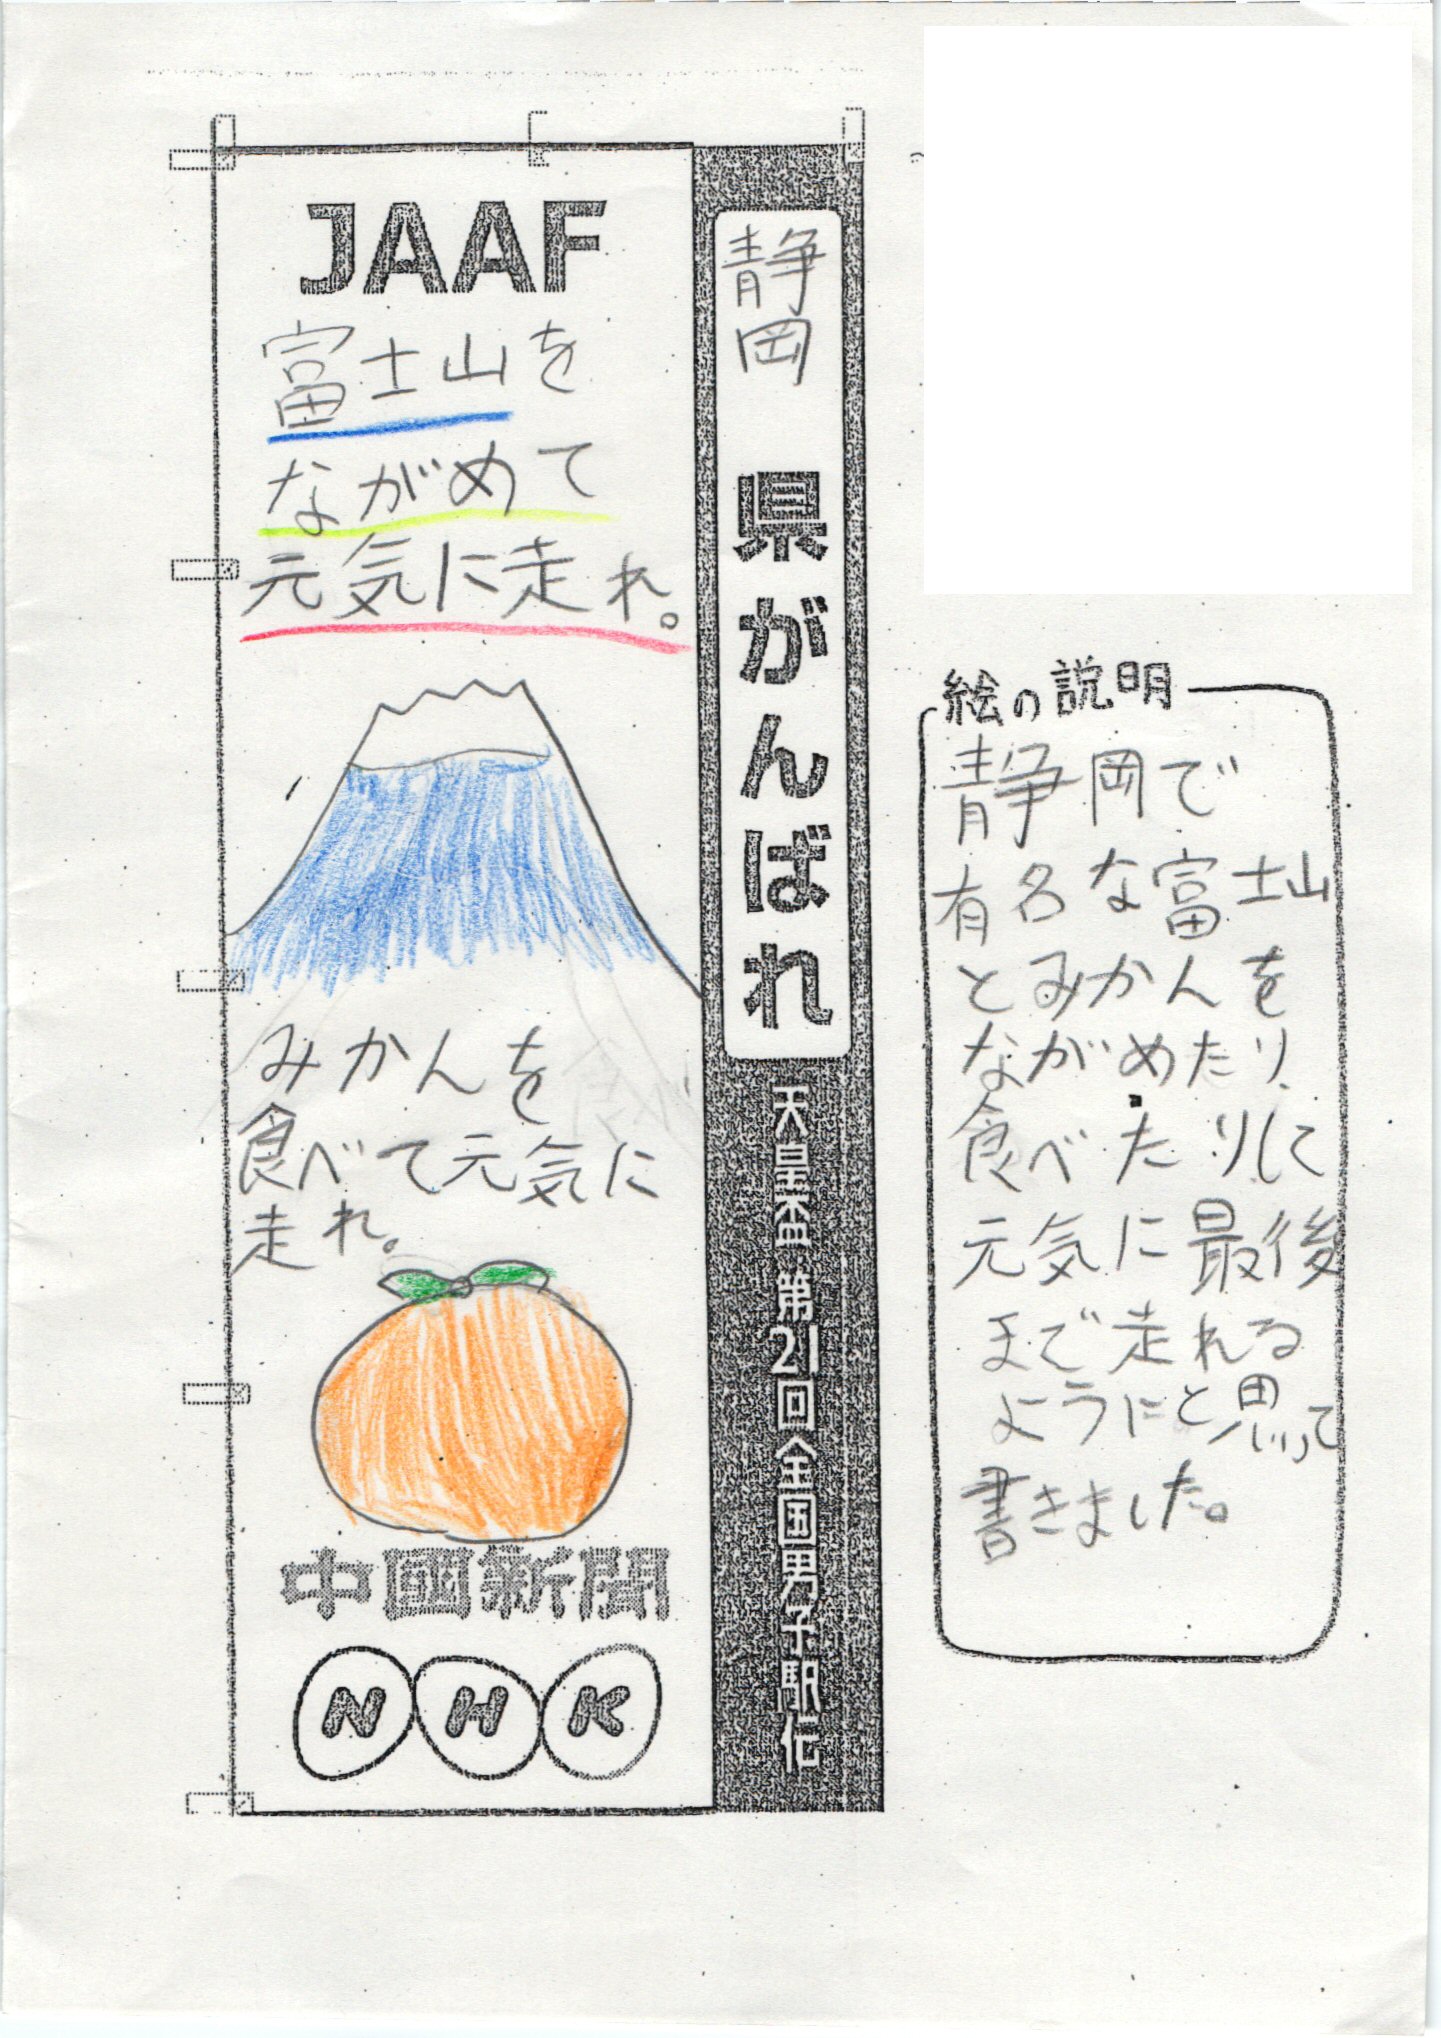 JAAF
富士山を
ながめて
元気に走れ。
みかんを
食べて元気に
走れ。
中國新聞
NHK
静岡県がんばれ
天皇盃 第21回全国男子駅伝
絵の説明
静岡で
有名な富士山
とみかんを
ながめたり、
食べたりして
元気に最後
まで走れる
ようにと思って
書きました。